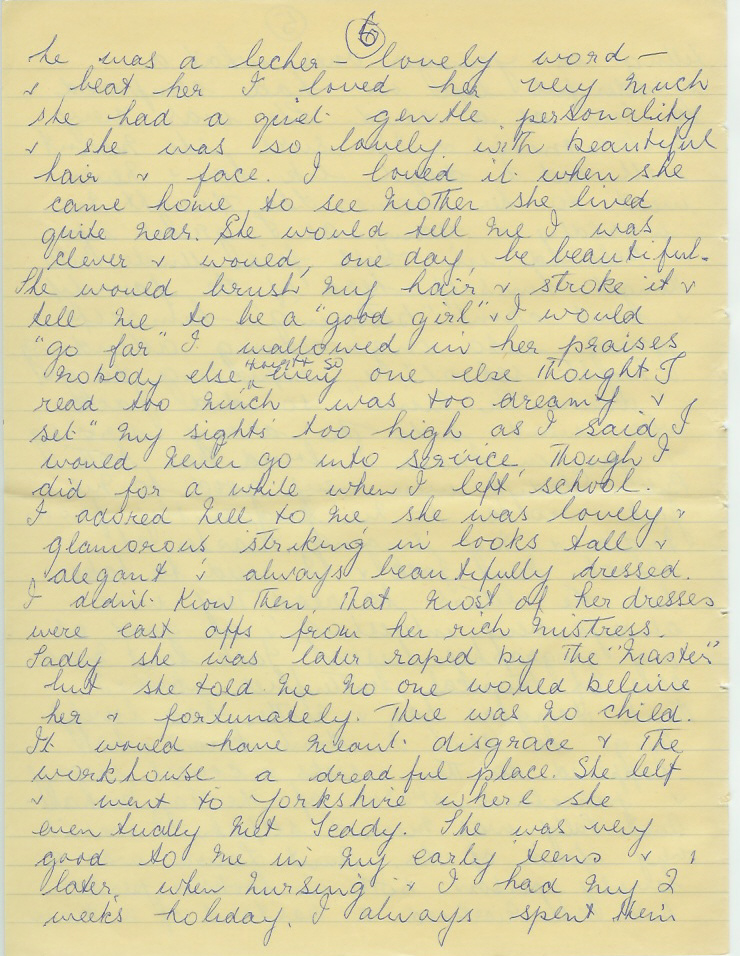 6
he was a lecher – lovely word –
& beat her I loved her very much
she had a quiet gentle personality
& she was so lovely with beautiful
hair & face. I loved it when she
came home to see Mother she lived
quite near. She would tell me I was
clever & would, one day, be beautiful.
She would brush my hair & stroke it &
tell me to be a "good girl" & I would
"go far" I wallowed in her praises
nobody else thought so every one else thought I
read too much was too dreamy &
set "my sights" too high as I said I
would never go into service, though I
did for a while when I left school.
I adored Nell to me she was lovely &
glamorous striking in looks tall &
alegant & always beautifully dressed.
I didn't know then, that most of her dresses
were cast offs from her rich mistress.
Sadly she was later raped by the "Master"
but she told me no one would beleive
her & fortunately. There was no child.
It would have meant disgrace & the
workhouse a dreadful place. She left
& went to Yorkshire where she
eventually met Teddy. She was very
good to me in my early teens &
later, when nursing & I had my 2
weeks holiday, I always spent them